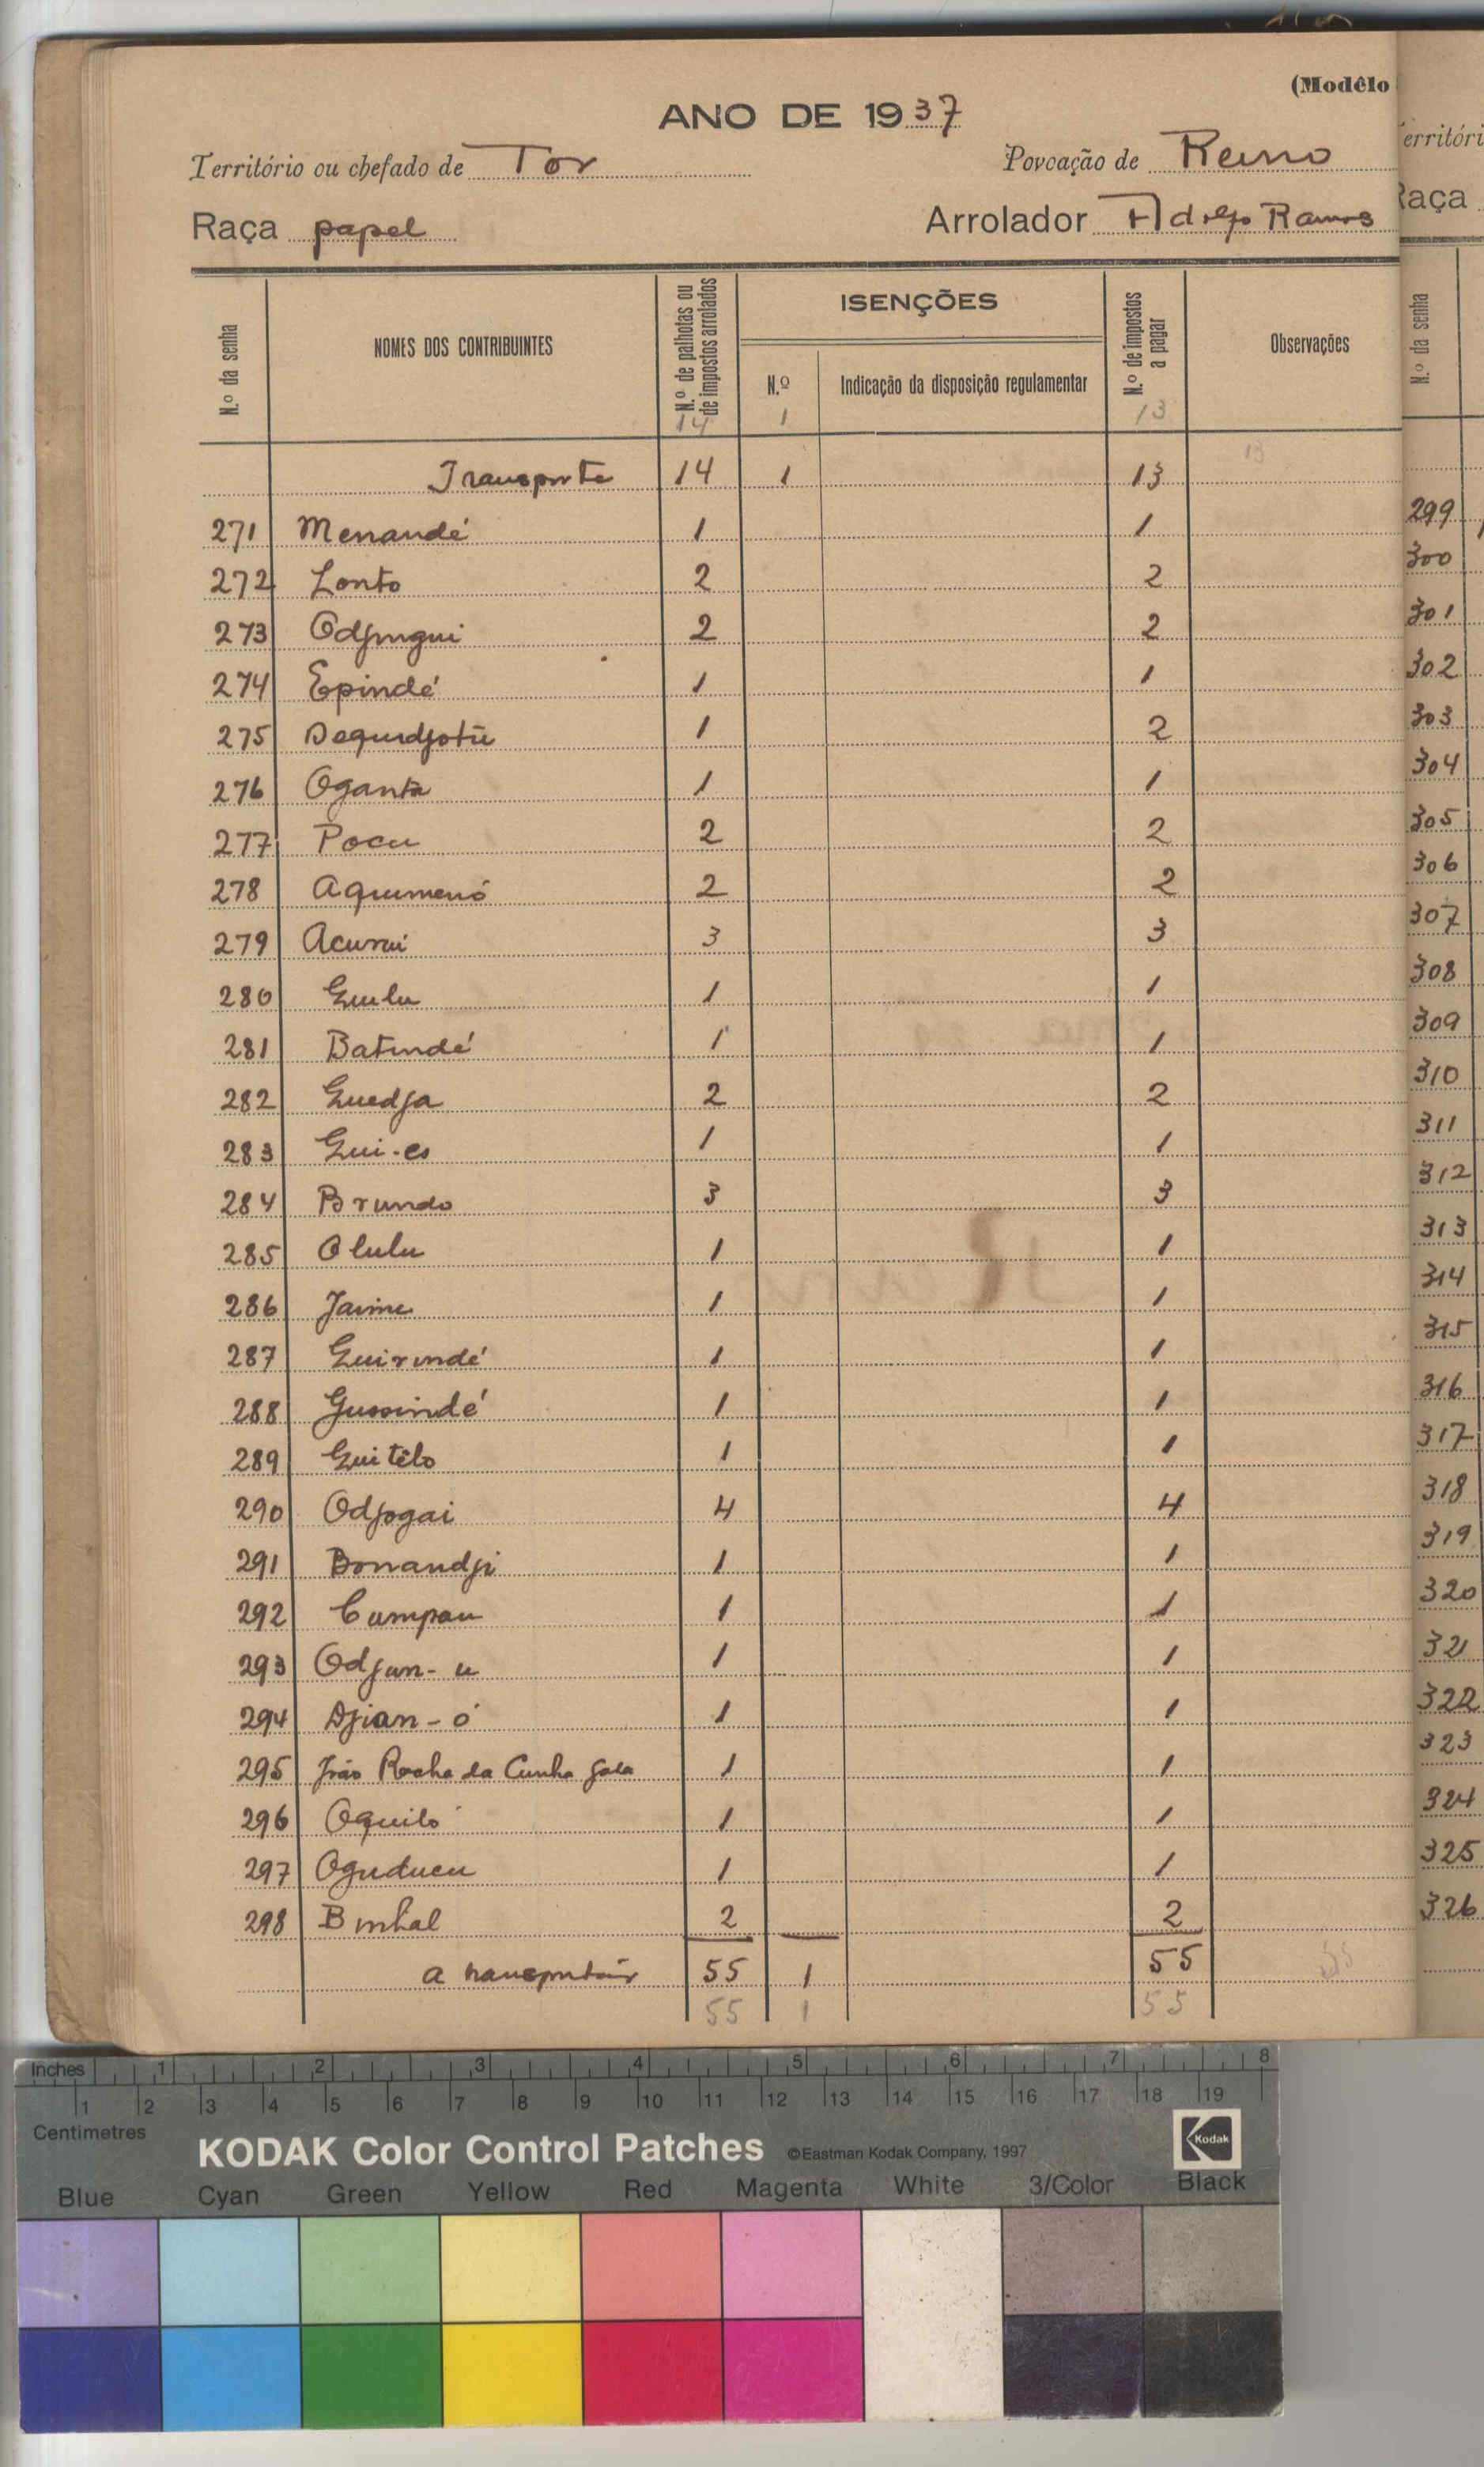 (Modêlo
ANO DE 1937
Território ou chefado de Tor Povoação de Reino
Raça papel Arrolador Adolfo Ramos
N.º da senha NOMES DOS CONTRIBUINTES N.º de palhotas ou de impostos arrolados ISENÇÕES N.º Indicação da disposição regulamentar N.º de impostos a pagar Observações
14 1 13
13
Transporte 14 1 13
271 Menandé 1 1
272 Lonto 2 2
273 Odjingui 2 2
274 Epindé 1 1
275 1 2
276 Oganta 1 1
277 Pocu 2 2
278 Aquimenó 2 2
279 3 3
280 Guilu 1 1
281 Batindé 1 1
282 Guedja 2 2
283 Gui-es 1 1
284 Brundo 3 3
285 Olulu 1 1
286 Jaime 1 1
287 Guirindé 1 1
288 Gussindé 1 1
289 Guitêlo 1 1
290 Odjogai 4 4
291 Bonandji 1 1
292 Cumpau 1 1
293 Odjun-u 1 1
294 Djian-ó 1 1
295 João Rocha da Cunha 1 1
296 Oquiló 1 1
297 Oguducu 1 1
298 Binhal 2 2
a transportar 55 1 55
55 1 55
55
erritóri
Raça
N.º da senha
299
300
301
302
303
304
305
306
307
308
309
310
311
312
313
314
315
316
317
318
319
320
321
322
323
324
325
326
Inches 1 2 3 4 5 6 7 8
1 2 3 4 5 6 7 8 9 10 11 12 13 14 15 16 17 18 19
Centimetres
KODAK Color Control Patches ©Eastman Kodak Company, 1997 Kodak
Blue Cyan Green Yellow Red Magenta White 3/Color Black